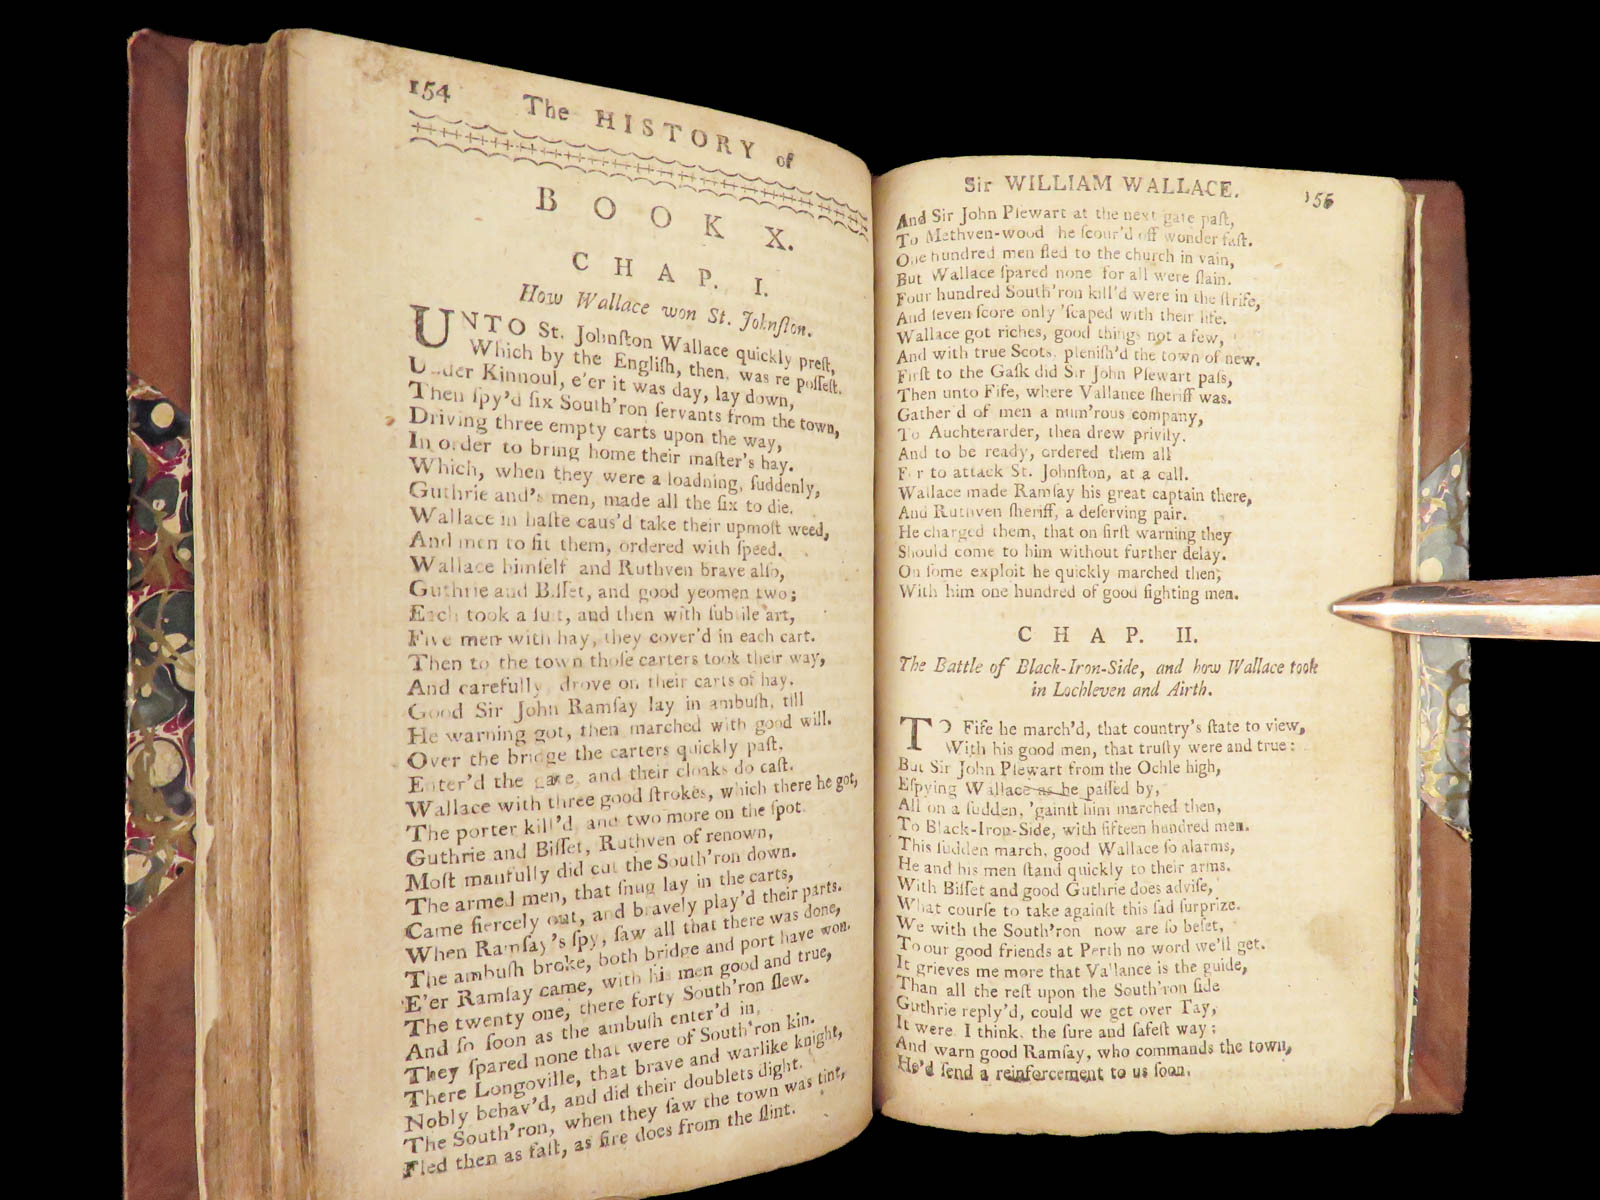 154
The HISTORY of
BOOK X.
CHAP. I.
How Wallace won St. Johnſton.
UNTO St. Johnſton Wallace quickly preſt,
Which by the Engliſh, then, was re poſſeſt.
U der Kinnoul, e'er it was day, lay down,
Then ſpy'd ſix South'ron ſervants from the town,
Driving three empty carts upon the way,
In order to bring home their maſter's hay.
Which, when they were a loadning, ſuddenly,
Guthrie and's men, made all the ſix to die.
Wallace in haſte caus'd take their upmoſt weed,
And men to fit them, ordered with ſpeed.
Wallace himſelf and Ruthven brave alſo,
Guthrie and Biſſet, and good yeomen two;
Each took a ſuit, and then with ſubtile art,
Five men with hay, they cover'd in each cart.
Then to the town thoſe carters took their way,
And carefully drove on their carts of hay.
Good Sir John Ramſay lay in ambuſh, till
He warning got, then marched with good will.
Over the bridge the carters quickly paſt,
Enter'd the gate, and their cloaks do caſt.
Wallace with three good ſtrokes, which there he got,
The porter kill'd, and two more on the ſpot.
Guthrie and Biſſet, Ruthven of renown,
Moſt manfully did cut the South'ron down.
The armed men, that ſnug lay in the carts,
Came fiercely out, and bravely play'd their parts.
When Ramſay's ſpy, ſaw all that there was done,
The ambuſh broke, both bridge and port have won.
E'er Ramſay came, with his men good and true,
The twenty one, there forty South'ron ſlew.
And ſo ſoon as the ambuſh enter'd in,
They ſpared none that were of South'ron kin.
There Longoville, that brave and warlike knight,
Nobly behav'd, and did their doublets dight.
The South'ron, when they ſaw the town was tint,
Fled then as faſt, as fire does from the flint.
Sir WILLIAM WALLACE. 155
And Sir John Pſewart at the next gate paſt,
To Methven-wood he ſcour'd off wonder faſt.
One hundred men fled to the church in vain,
But Wallace ſpared none for all were ſlain.
Four hundred South'ron kill'd were in the ſtrife,
And ſeven ſcore only 'ſcaped with their life.
Wallace got riches, good things not a few,
And with true Scots, pleniſh'd the town of new.
Firſt to the Gaſk did Sir John Pſewart paſs,
Then unto Fife, where Vallance ſheriff was.
Gather'd of men a num'rous company,
To Auchterarder, then drew privily.
And to be ready, ordered them all
For to attack St. Johnſton, at a call.
Wallace made Ramſay his great captain there,
And Ruthven ſheriff, a deſerving pair.
He charged them, that on firſt warning they
Should come to him without further delay.
On ſome exploit he quickly marched then,
With him one hundred of good fighting men.
CHAP. II.
The Battle of Black-Iron-Side, and how Wallace took
in Lochleven and Airth.
TO Fife he march'd, that country's ſtate to view,
With his good men, that truſty were and true:
But Sir John Pſewart from the Ochle high,
Eſpying Wallace as he paſſed by,
All on a ſudden, 'gainſt him marched then,
To Black-Iron-Side, with fifteen hundred men.
This ſudden march, good Wallace ſo alarms,
He and his men ſtand quickly to their arms.
With Biſſet and good Guthrie does adviſe,
What courſe to take againſt this ſad ſurprize.
We with the South'ron now are ſo beſet,
To our good friends at Perth no word we'll get.
It grieves me more that Vallance is the guide,
Than all the reſt upon the South'ron ſide
Guthrie reply'd, could we get over Tay,
It were I think, the ſure and ſafeſt way:
And warn good Ramſay, who commands the town,
He'd ſend a reinforcement to us ſoon.